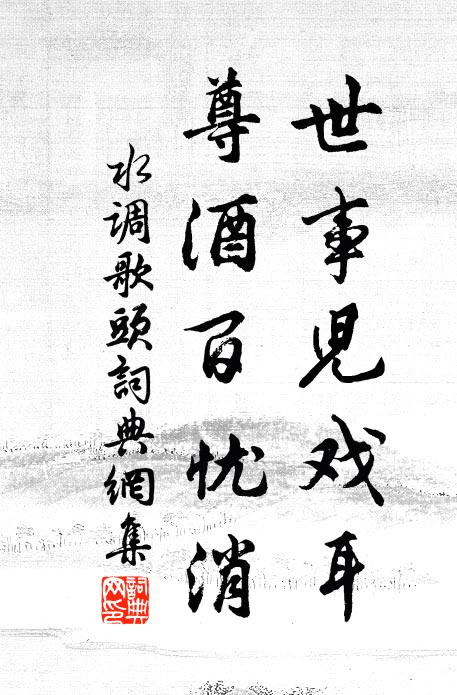 世事児戏耳
尊酒百忧消
水调歌頭詞典網集
詞典网印